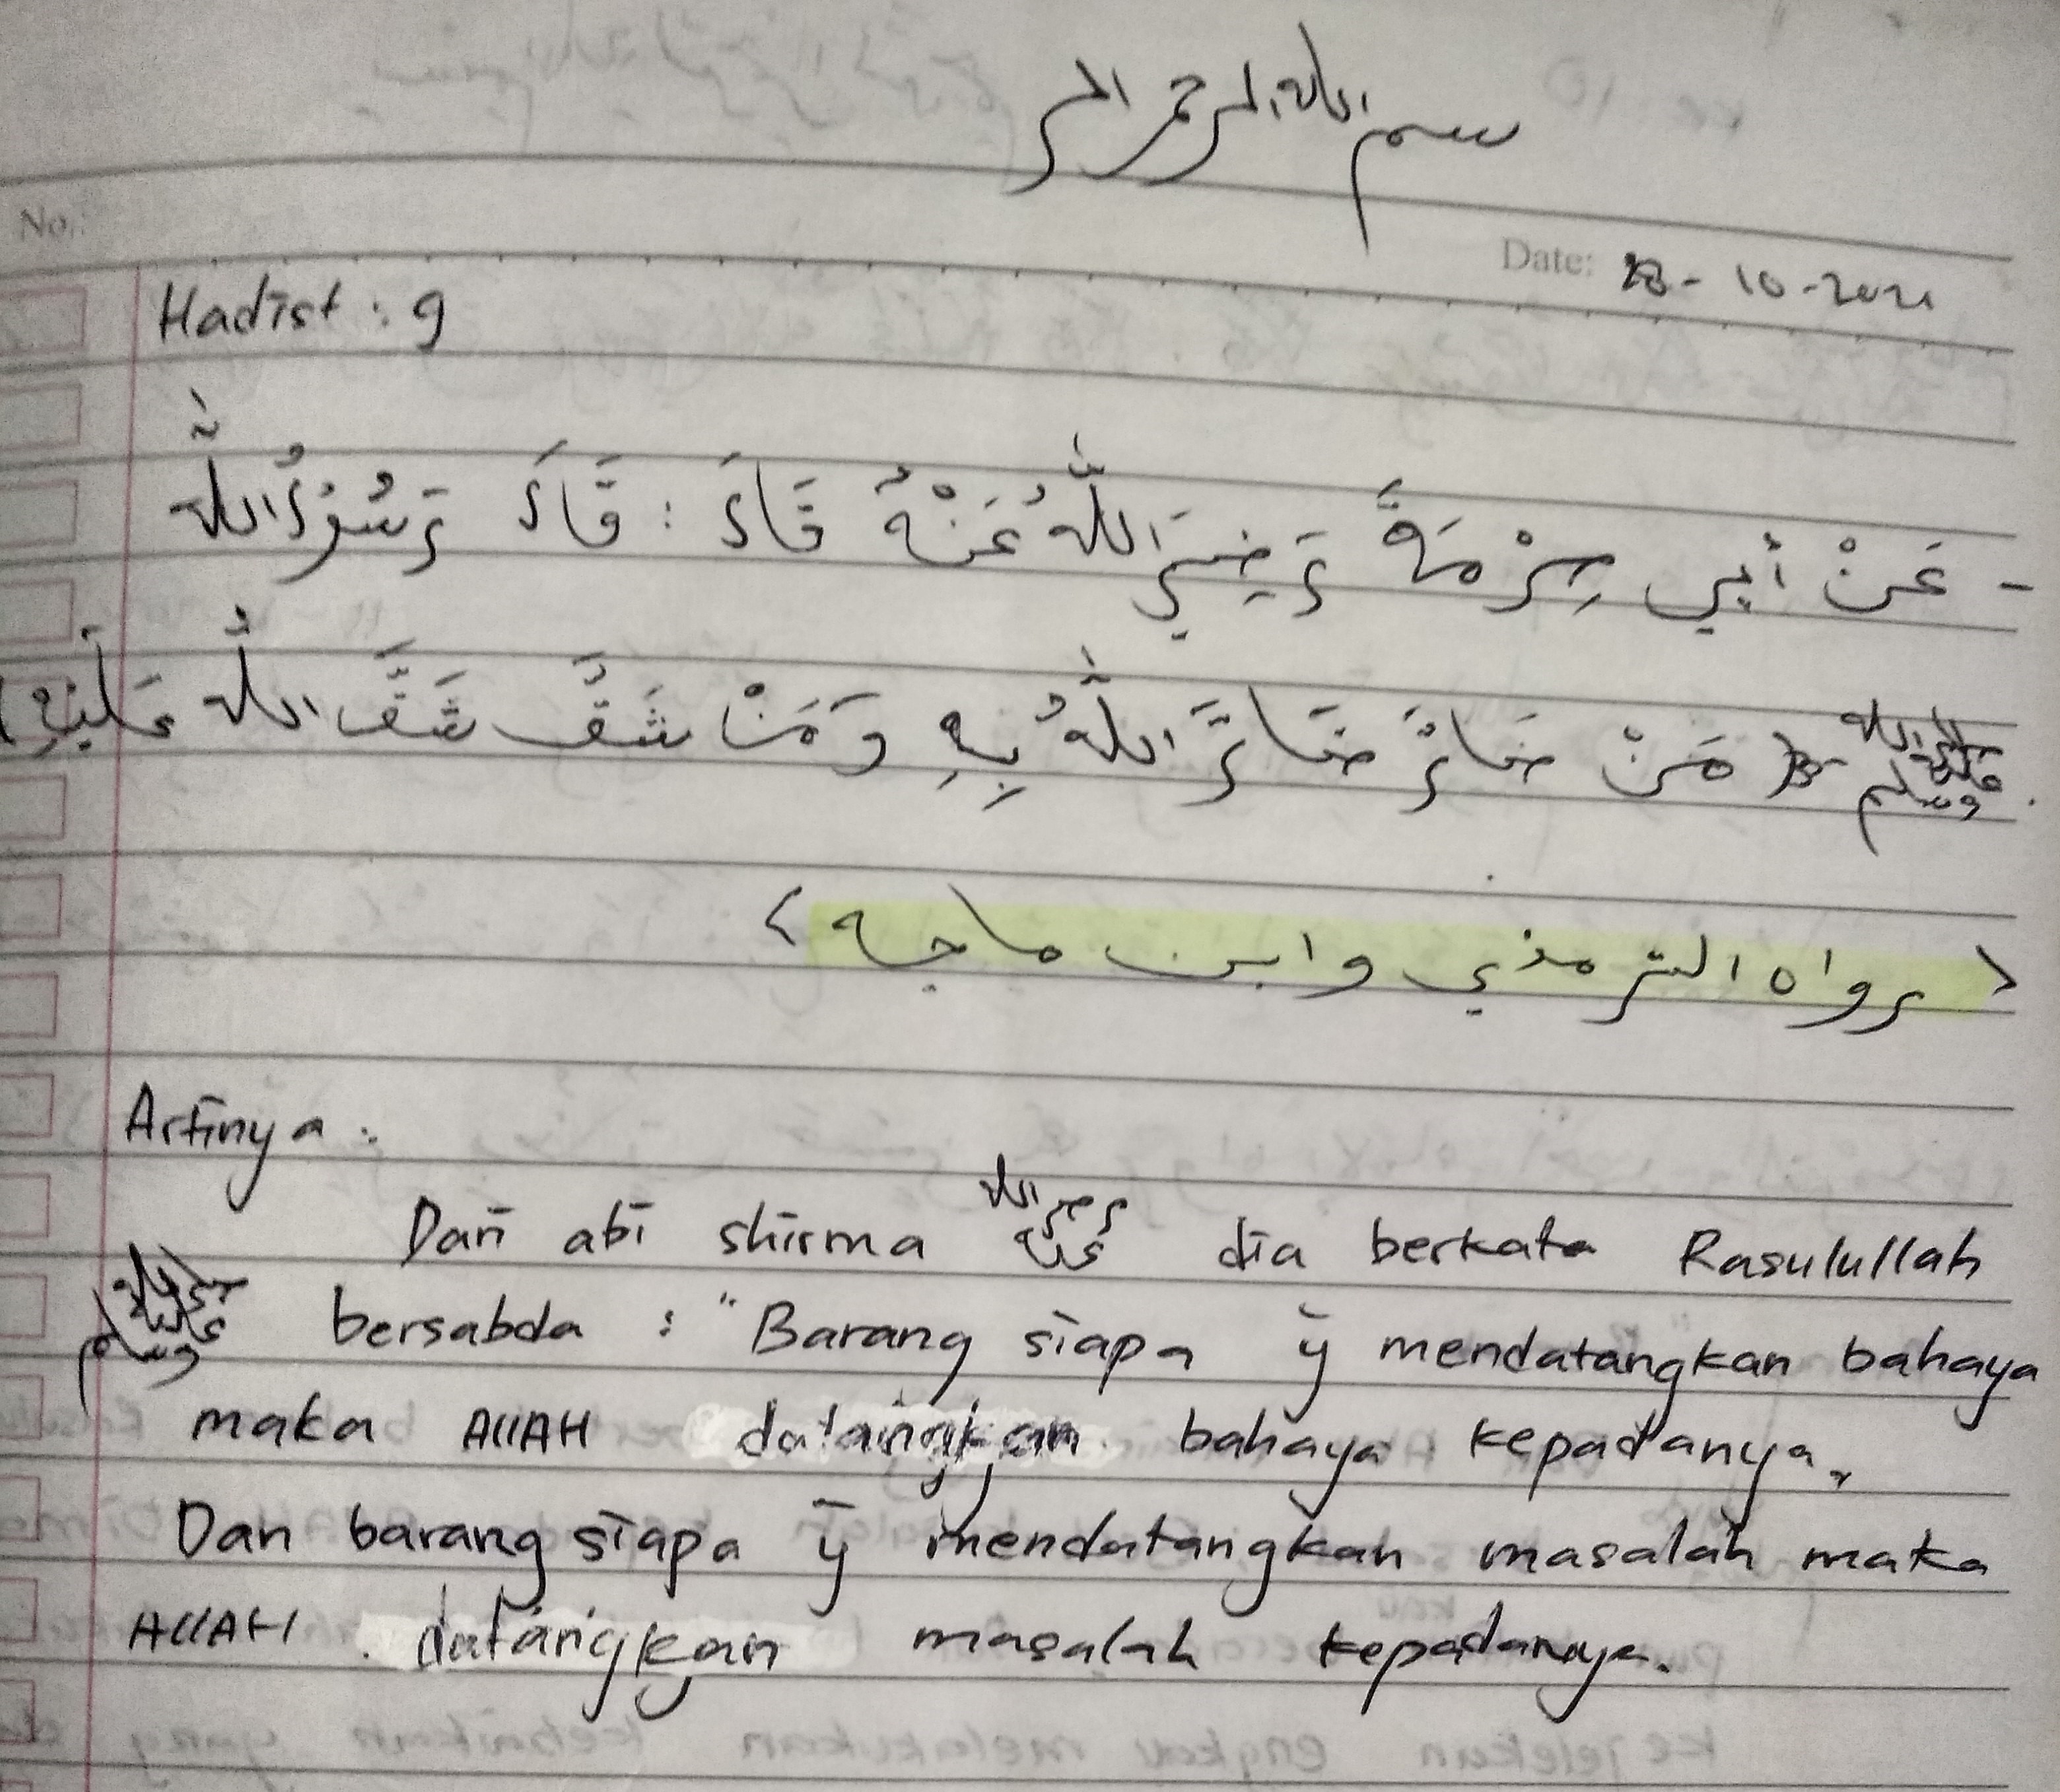 بسم الله الرحمن الرحيم
No.:
Date: 18-10-2021
Hadist : 9
- عَنْ أَبِي صِرْمَةَ رَضِيَ اللّٰهُ عَنْهُ قَالَ : قَالَ رَسُوْلُ اللّٰه
صلى الله عليه وسلم مَنْ ضَارَّ ضَارَّ اللّٰهُ بِهِ وَمَنْ شَقَّ شَقَّ اللّٰه عَلَيْهِ
( رواه الترمذي وابن ماجه )
Artinya :
Dari abi shirma رضي الله عنه dia berkata Rasulullah
صلى الله عليه وسلم bersabda : "Barang siapa ȳ mendatangkan bahaya
maka AllAH datangkan bahaya kepadanya,
Dan barang siapa ȳ mendatangkan masalah maka
AllAH datangkan masalah kepadanya.